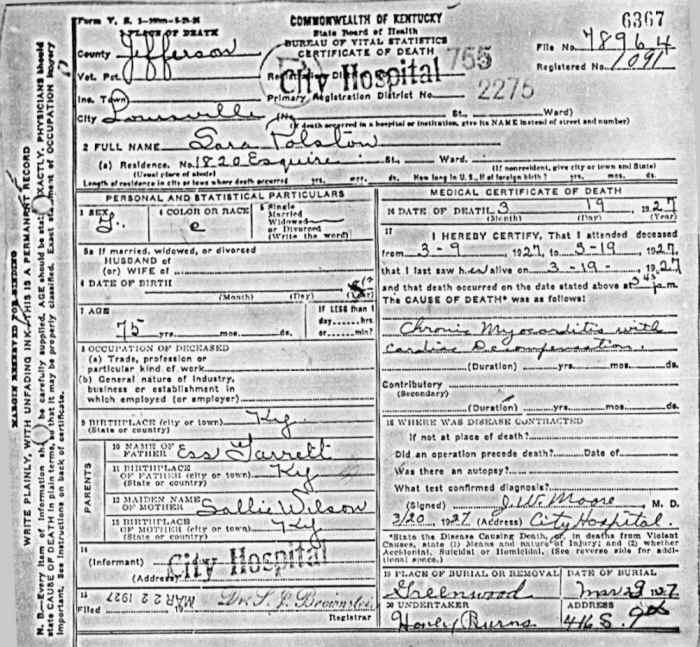 Form V. S.
6367
PLACE OF DEATH
COMMONWEALTH OF KENTUCKY
State Board of Health
BUREAU OF VITAL STATISTICS
CERTIFICATE OF DEATH
County Jefferson
File No. 78964
Registered No. 1091
Vot. Pct.
755
City Hospital
Inc. Town
Primary Registration District No.
2275
City Louisville (No. St., Ward)
(If death occurred in a hospital or institution, give its NAME instead of street and number)
2 FULL NAME Sara Tolston
(a) Residence. No. 1820 Esquire St., Ward.
(Usual place of abode) (If nonresident, give city or town and State)
Length of residence in city or town where death occurred yrs. mos. ds. How long in U. S., if of foreign birth? yrs. mos. ds.
PERSONAL AND STATISTICAL PARTICULARS
3 SEX F.
4 COLOR OR RACE c
5 Single
Married
Widowed
or Divorced
(Write the word)
5a If married, widowed, or divorced
HUSBAND of
(or) WIFE of
6 DATE OF BIRTH
(Month) (Day) (Year)
7 AGE
75 yrs. mos. ds.
If LESS than 1
day hrs.
or min?
8 OCCUPATION OF DECEASED
(a) Trade, profession or
particular kind of work
(b) General nature of industry,
business or establishment in
which employed (or employer)
9 BIRTHPLACE (city or town) Ky
(State or country)
PARENTS
10 NAME OF
FATHER Ess Garrett
11 BIRTHPLACE
OF FATHER (city or town) Ky
(State or country)
12 MAIDEN NAME
OF MOTHER Sallie Wilson
13 BIRTHPLACE
OF MOTHER (city or town) Ky
(State or country)
14
(Informant) City Hospital
(Address)
15
Filed MAR 22 1927 Dr. S. J. Brownstein
Registrar
MEDICAL CERTIFICATE OF DEATH
16 DATE OF DEATH 3 19 1927
(Month) (Day) (Year)
17
I HEREBY CERTIFY, That I attended deceased
from 3-9, 1927, to 3-19, 1927,
that I last saw her alive on 3-19-, 1927
and that death occurred on the date stated above at 3 45 p.m.
The CAUSE OF DEATH* was as follows:
Chronic Myocarditis with
Cardiac Decompensation.
(Duration) yrs. mos. ds.
Contributory
(Secondary)
(Duration) yrs. mos. ds.
18 WHERE WAS DISEASE CONTRACTED
If not at place of death?
Did an operation precede death? Date of
Was there an autopsy?
What test confirmed diagnosis?
(Signed) J. W. Moore M. D.
3/20, 1927 (Address) City Hospital.
*State the Disease Causing Death, or, in deaths from Violent
Causes, state (1) Means and nature of Injury; and (2) whether
Accidental, Suicidal or Homicidal. (See reverse side for addi-
tional space.)
19 PLACE OF BURIAL OR REMOVAL
Greenwood
DATE OF BURIAL
Mar 23 1927
20 UNDERTAKER
Henly Burns
ADDRESS
416 S. 9th
MARGIN RESERVED FOR BINDING
WRITE PLAINLY, WITH UNFADING INK—THIS IS A PERMANENT RECORD
N. B.—Every item of information should be carefully supplied. AGE should be stated EXACTLY. PHYSICIANS should
state CAUSE OF DEATH in plain terms, so that it may be properly classified. Exact statement of OCCUPATION is very
important. See instructions on back of certificate.